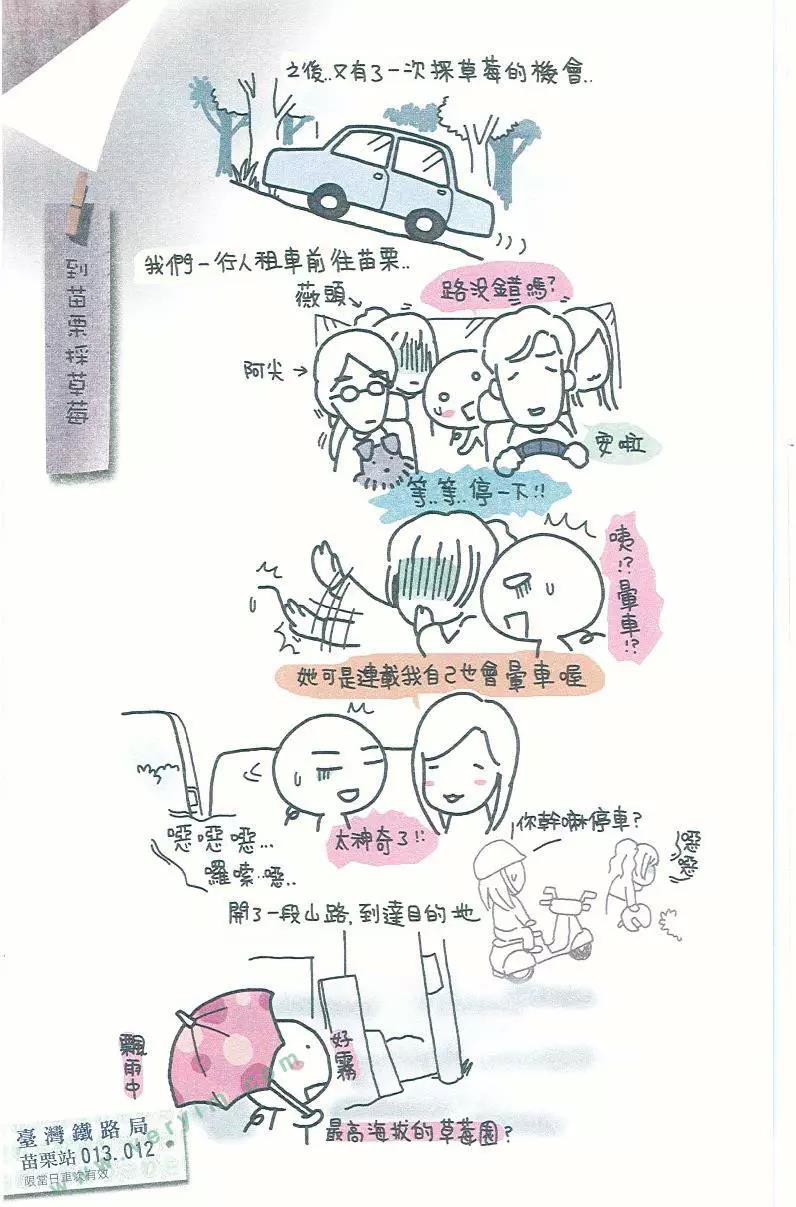 之後..又有了一次採草莓的機會..
到苗栗採草莓
我們一行人租車前往苗栗..
薇頭
路沒錯嗎?
阿尖
安啦
等..等..停一下!!
咦!?暈車!?
她可是連載我自己也會暈車喔
噁噁噁...
囉嗦..噁..
太神奇了!!
你幹嘛停車?
噁噁
開了一段山路,到達目的地
飄雨中
好霧
最高海拔的草莓園?
臺灣鐵路局
苗栗站 013.012
限當日車次有效